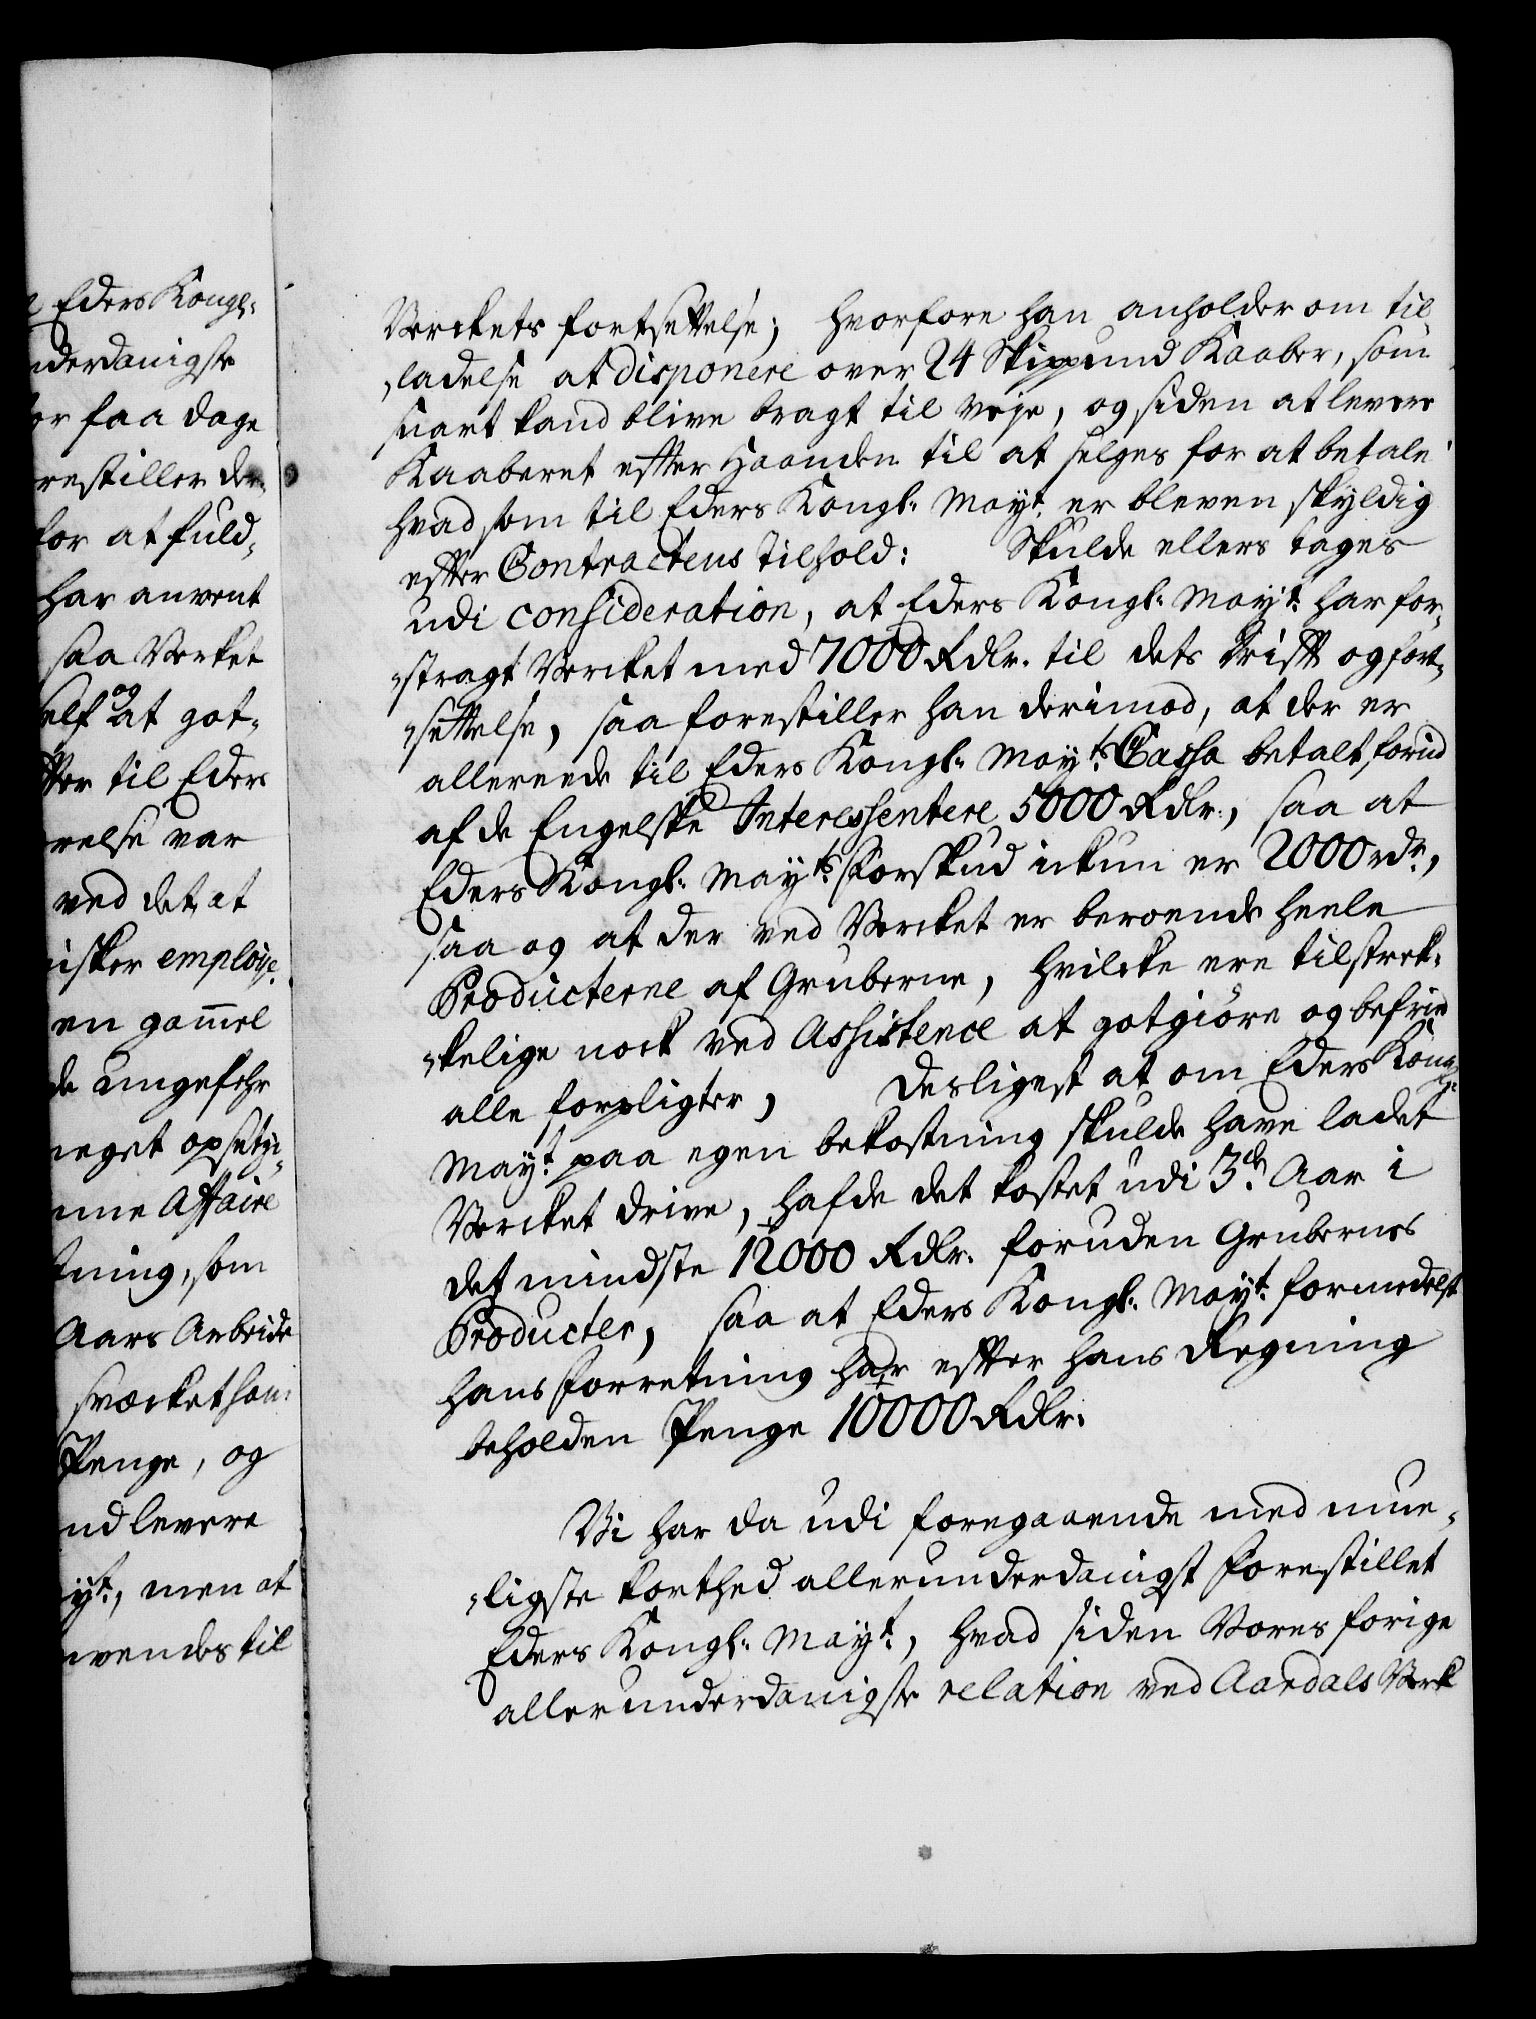 Eders Kongl:
nderdanigste
or faa dage
restiller der„
for at fuld„
har anvent
saa Verket
self og at got„
ter til Eders
relse var
ved det, at
isker employe„
en gammel
de ungefehr
meget opsetzi„
nne Affaire
tning, som
Aars Arbeide
svecket ham
Penge, og
nd levere
yt:, men at
nvendes til
Verckets fortsettelse; hvorfore han anholder om til„
„ladelse at disponere over 24 Skippund Kaaber, som
snart kand blive bragt til veje, og siden at levere
Kaaberet efter Haanden til at selges for at betale
hvad som til Eders Kongl: Mayt: er bleven skyldig
efter Contractens Tilhold: Skulde ellers tages
udi consideration, at Eders Kongl: Mayt: har for„
„stragt Vercket med 7000 Rdlr. til dets Drifft og fort„
„settelse, saa forestiller han derimod, at der er
allereede til Eders Kongl: Mayts: Cassa betalt forud
af de Engelske Interessentere 5000 Rdlr:, saa at
Eders Kongl: Mayts: Forskud ickun er 2000 rdr,
saa og at der ved Vercket er beroende heele
Producterne af Gruberne, hvilcke ere tilstreck„
„kelige nock ved Assistence at gotgiöre og befrie
alle forpligter, Desligest at om Eders Kongl:
Mayt: paa egen bekostning skulde have ladet
Vercket drive, hafde det kostet udi 3de Aar i
det mindste 12000 Rdlr. foruden Grubernes
Producter, saa at Eders Kongl: Mayt: formedelst
hans forretning har efter hans Regning
beholden Penge 10000 Rdlr.
Vi har da udi foregaaende med mue„
„ligste korthed allerunderdanigst forestillet
Eders Kongl: Mayt:, hvad siden Vores forige
allerunderdanigste relation ved Aardals Verk